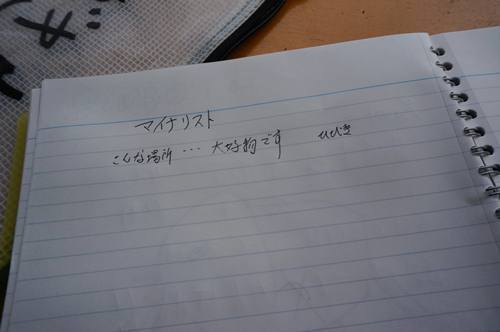 マイナリスト
こんな場所… 大好物です ひびき